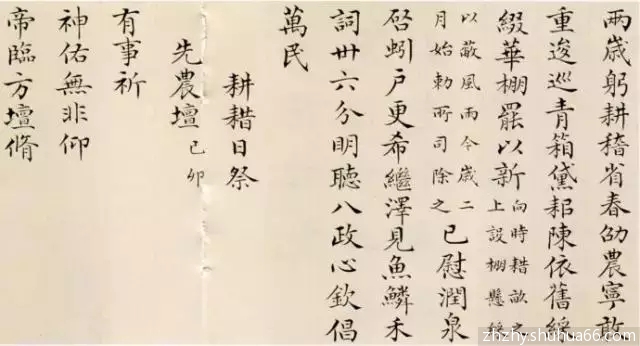 兩歳躬耕稽省春劭農寧敢
重逡巡青箱黛耜陳依舊綵
綴華棚罷以新向時耤畝之
上設棚懸綵
以蔽風雨今歳二
月始勅所司除之已慰潤泉
啓蚓户更希繼澤見魚鱗禾
詞卅六分明聽八政心欽倡
萬民
耕耤日祭
先農壇己卯
有事祈
神佑無非仰
帝臨方壇脩
zhzhy.shuhua66.com